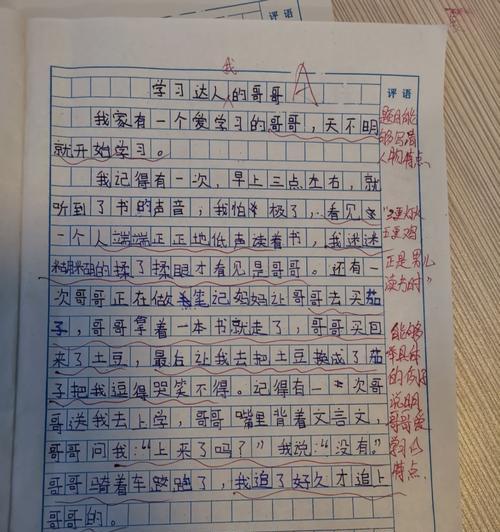 评语
我
学习达人的哥哥
A
评语
我家有一个爱学习的哥哥，天不明
就开始学习。
我记得有一次，早上三点左右，就
听到了书的声音，我怕极了，看见
一个人端端正正地低声读着书，我迷迷
糊糊的揉了揉眼才看见是哥哥。还有一
次哥哥正在做笔记妈妈让哥哥去买茄
子，哥哥拿着一本书就走了，哥哥买回
来了土豆，最后让我去把土豆换成了茄
子把我逗得哭笑不得。记得有一次哥
哥送我去上学，哥哥嘴里背着文言文，
哥哥问我：“上来了吗？”我说：“没有。”
哥哥骑着车跑了，我追了好久才追上
哥哥的。
题目能
够写清
人物特点
三更灯火
五更鸡
正是男儿
读书时”
能够
具体
的
说明
哥哥爱
学习的
特点.